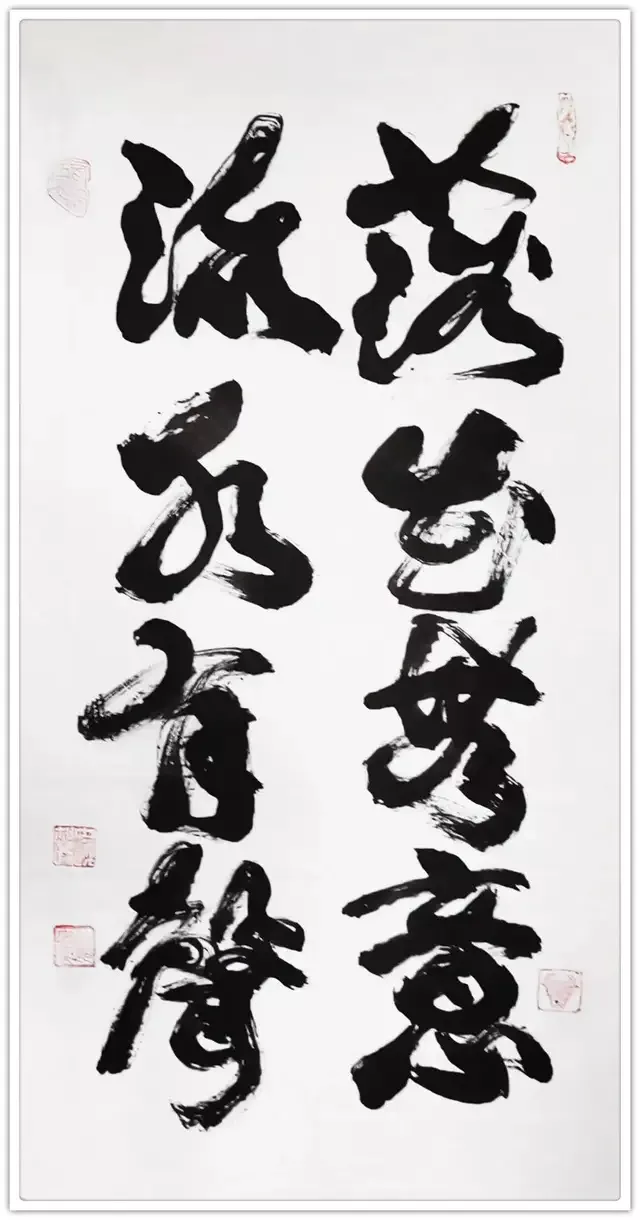 落花無意
流水有聲